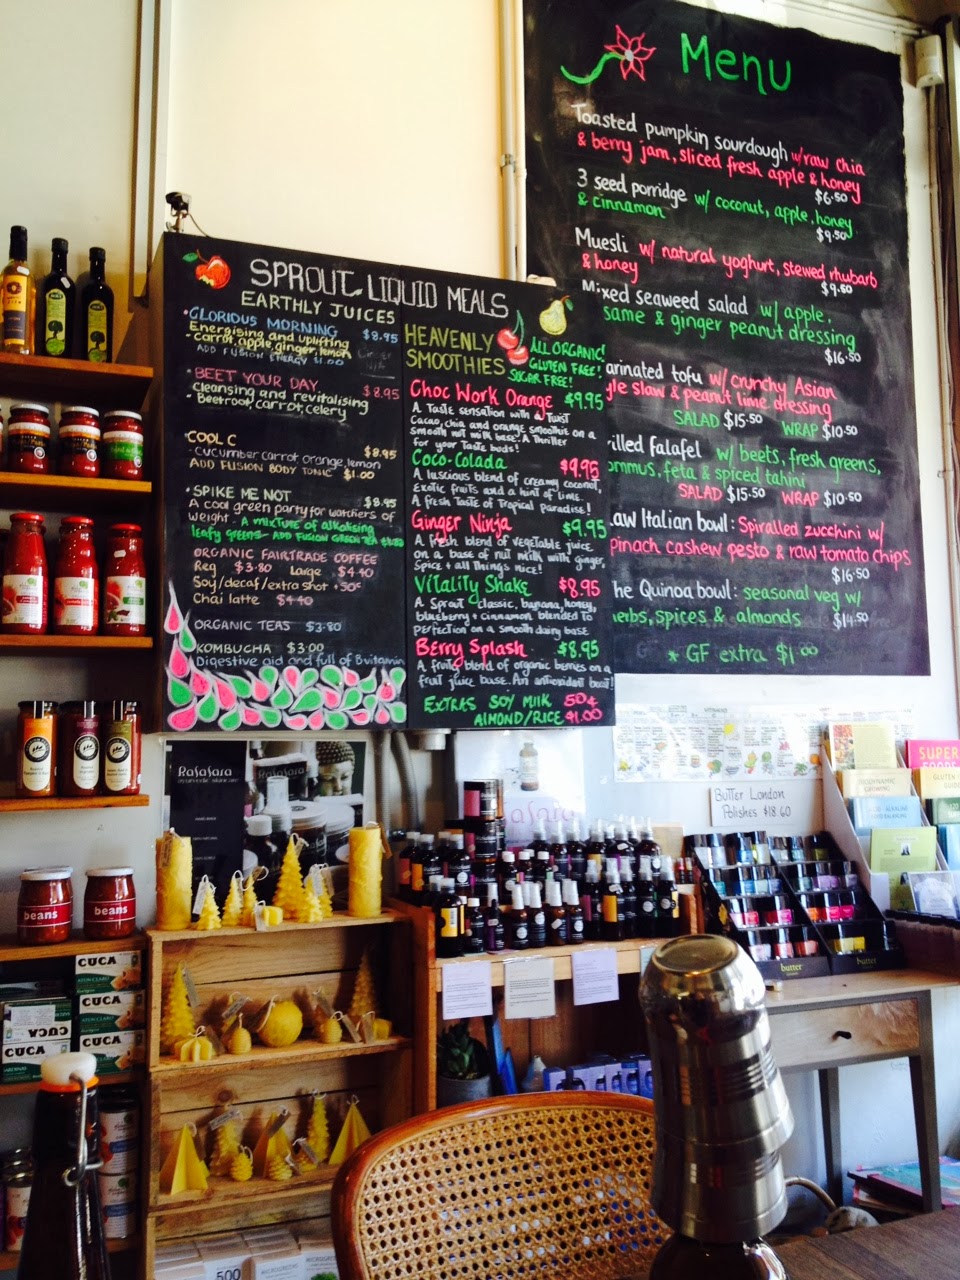 Menu
Toasted pumpkin sourdough w/raw chia
& berry jam, sliced fresh apple & honey
$6.50
3 seed porridge w/ coconut, apple, honey
& cinnamon
$9.50
Muesli w/ natural yoghurt, stewed rhubarb
& honey
$9.50
Mixed seaweed salad w/ apple,
same & ginger peanut dressing
$16.50
arinated tofu w/ crunchy Asian
le slaw & peanut lime dressing
SALAD $15.50 WRAP $10.50
rilled falafel w/ beets, fresh greens,
ommus, feta & spiced tahini
SALAD $15.50 WRAP $10.50
aw Italian bowl: Spiralled zucchini w/
pinach cashew pesto & raw tomato chips
$16.50
he Quinoa bowl: seasonal veg w/
erbs, spices & almonds $14.50
* GF extra $1.00
SPROUT LIQUID MEALS
EARTHLY JUICES
• GLORIOUS MORNING $8.95
Energising and uplifting
- Carrot, apple, ginger, lemon
ADD FUSION ENERGY $1.00
• BEET YOUR DAY $8.95
Cleansing and revitalising
- Beetroot, carrot, celery
COOL C $8.95
- cucumber carrot orange, lemon
ADD FUSION BODY TONIC $1.00
• SPIKE ME NOT $8.95
A cool green party for watchers of
weight - A mixture of alkalising
leafy greens - ADD FUSION GREEN TEA
ORGANIC FAIRTRADE COFFEE
Reg $3.80 Large $4.40
Soy/decaf/extra shot +50c
Chai latte $4.40
ORGANIC TEAS $3.80
KOMBUCHA $3.00
Digestive aid and full of B vitamin
HEAVENLY
SMOOTHIES
ALL ORGANIC!
GLUTEN FREE!
SUGAR FREE!
Choc Work Orange $9.95
A Taste sensation with a Twist
Cacao, chia and orange smoothie on a
smooth nut milk base. A thriller
for your Taste buds!
Coco-Colada $9.95
A luscious blend of creamy coconut,
Exotic fruits and a hint of lime.
A fresh taste of Tropical Paradise!
Ginger Ninja $9.95
A fresh blend of vegetable juice
on a base of nut milk with ginger,
Spice + all things nice!
Vitality Shake $8.95
A Sprout classic, banana, honey,
blueberry + cinnamon blended to
perfection on a smooth dairy base
Berry Splash $8.95
A fruity blend of organic berries on a
fruit juice base. An antioxidant boost!
EXTRAS SOY MILK 50¢
ALMOND/RICE $1.00
RaSaSara
RaSaSara
asara
Butter London
Polishes $18.60
SUPER
FOODS
GLUTEN
butter
butter
beans
beans
CUCA
CUCA
CUCA
CUCA
CUCA
500
MICROGREENS